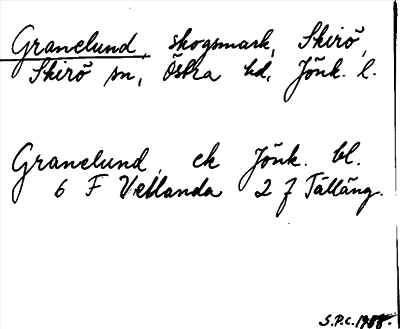 Granelund, skogsmark, Skirö,
Skirö sn, Östra hd, Jönk. l.
Granelund, ek Jönk. bl.
6 F Vetlanda 2 j Tälläng.
S.P.C. 1988.